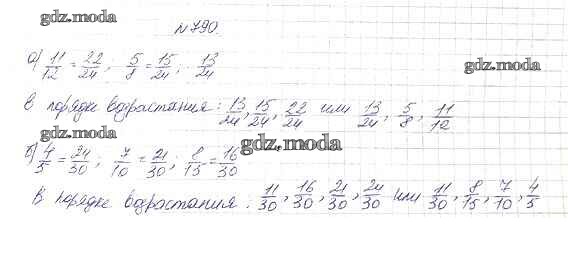 gdz.moda
№790.
а) 11/12 = 22/24; 5/8 = 15/24; 13/24
gdz.moda
gdz.moda
В порядке возрастания: 13/24, 15/24, 22/24 или 13/24, 5/8, 11/12
gdz.moda
gdz.moda
б) 4/5 = 24/30; 7/10 = 21/30; 8/15 = 16/30
gdz.moda
В порядке возрастания: 11/30, 16/30, 21/30, 24/30 или 11/30, 8/15, 7/10, 4/5
gdz.moda